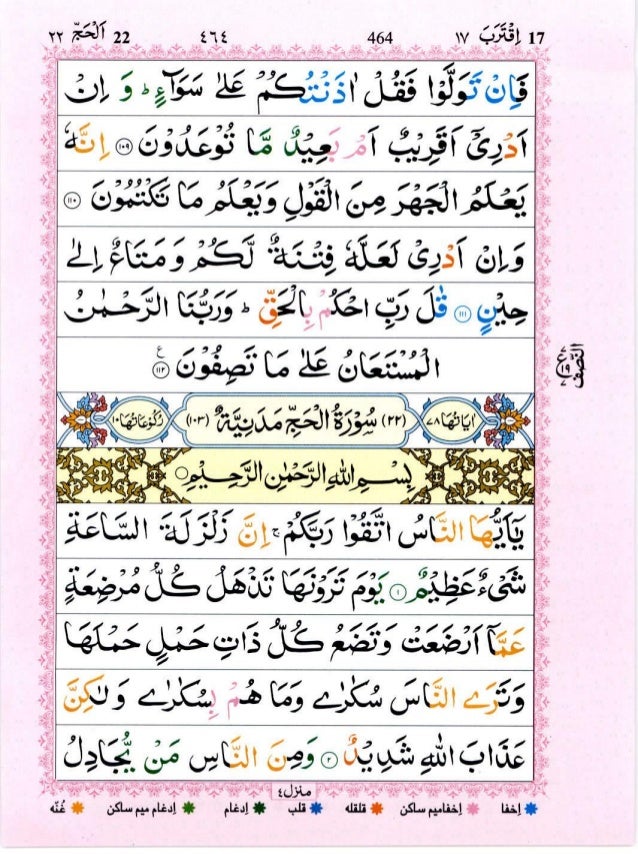 17 اِقْتَرَبَ ١٧ 464 ٤٦٤ 22 اَلْحَجّ ٢٢
فَاِنْ تَوَلَّوْا فَقُلْ اٰذَنْتُكُمْ عَلٰى سَوَآءٍ ؕ وَ اِنْ
اَدْرِیْۤ اَقَرِیْبٌ اَمْ بَعِیْدٌ مَّا تُوْعَدُوْنَ ۝۱۰۹ اِنَّهٗ
یَعْلَمُ الْجَهْرَ مِنَ الْقَوْلِ وَیَعْلَمُ مَا تَكْتُمُوْنَ ۝۱۱۰
وَاِنْ اَدْرِیْ لَعَلَّهٗ فِتْنَةٌ لَّكُمْ وَ مَتَاعٌ اِلٰى
حِیْنٍ ۝۱۱۱ قٰلَ رَبِّ احْكُمْ بِالْحَقِّ ؕ وَرَبُّنَا الرَّحْمٰنُ
الْمُسْتَعَانُ عَلٰى مَا تَصِفُوْنَ ۝۱۱۲ ع
النصف ع ١٩ ٧
اٰیَاتُهَا ٧٨ (٢٢) سُوْرَةُ الْحَجِّ مَدَنِیَّةٌ (١٠٣) رُكُوْعَاتُهَا ١٠
بِسْمِ اللّٰهِ الرَّحْمٰنِ الرَّحِیْمِ
یٰۤاَیُّهَا النَّاسُ اتَّقُوْا رَبَّكُمْ ۚ اِنَّ زَلْزَلَةَ السَّاعَةِ
شَیْءٌ عَظِیْمٌ ۝۱ یَوْمَ تَرَوْنَهَا تَذْهَلُ كُلُّ مُرْضِعَةٍ
عَمَّاۤ اَرْضَعَتْ وَتَضَعُ كُلُّ ذَاتِ حَمْلٍ حَمْلَهَا
وَتَرَى النَّاسَ سُكٰرٰى وَمَا هُمْ بِسُكٰرٰى وَلٰكِنَّ
عَذَابَ اللّٰهِ شَدِیْدٌ ۝۲ وَمِنَ النَّاسِ مَنْ یُّجَادِلُ
منزل ٤
اِخفا اِخفامیم ساکن قلقله قلب اِدغام اِدغام میم ساکن غُنّه